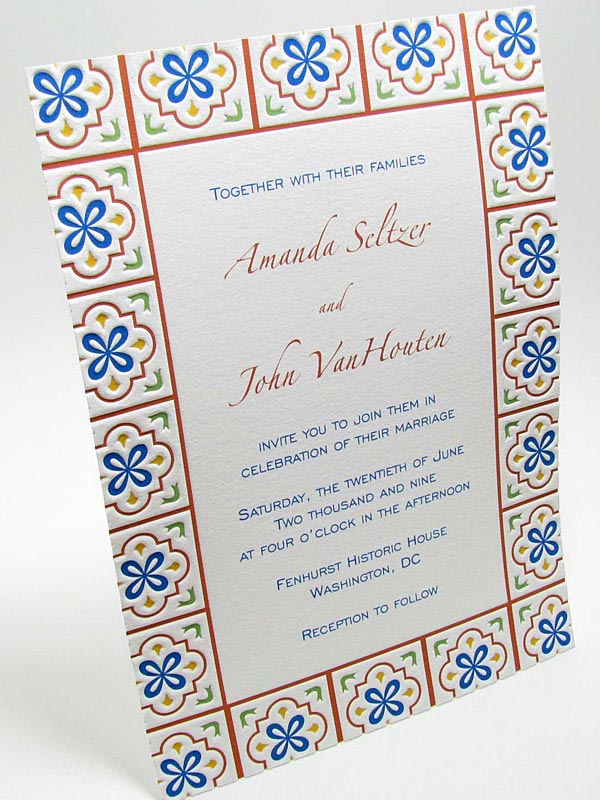 Together with their families
Amanda Seltzer
and
John VanHouten
invite you to join them in
celebration of their marriage
Saturday, the twentieth of June
Two thousand and nine
at four o'clock in the afternoon
Fenhurst Historic House
Washington, DC
Reception to follow